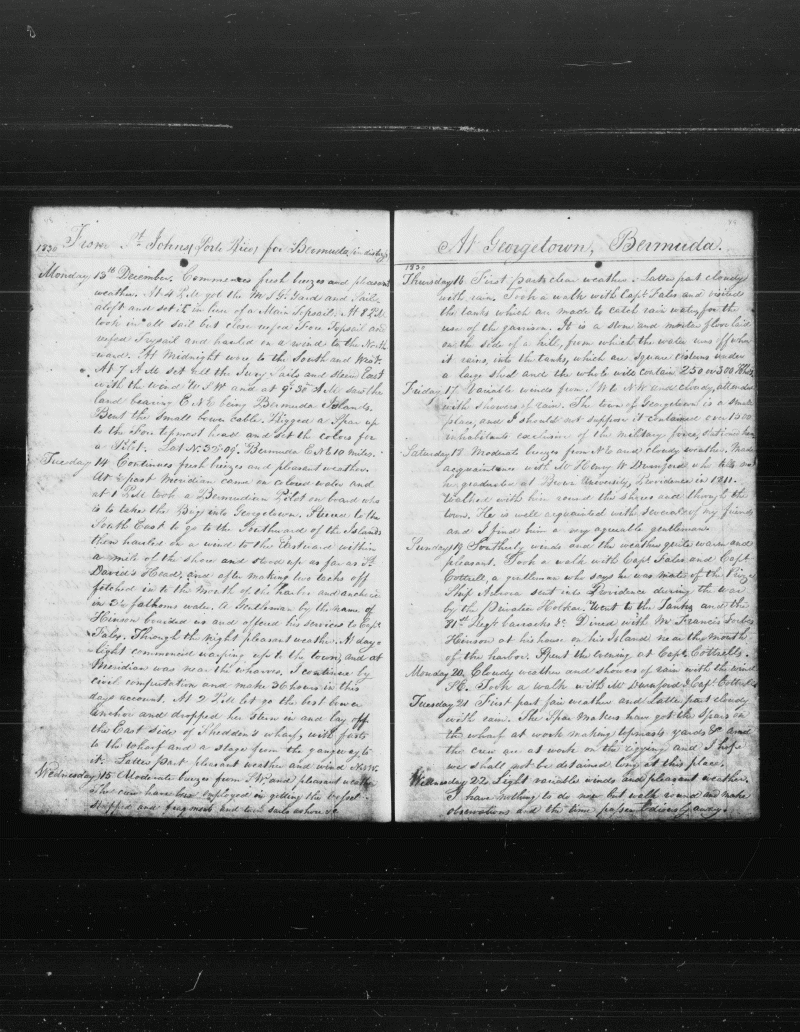 1830 From St. Johns, Porto Rico, for Bermuda, in distress
Monday 13th December. Commences fresh breezes and pleasant
weather. At 4 P.M. got the M. T. G. Yard and Sails
aloft and set it in lieu of a Main Topsail. At 8 P.M.
took in all Sail but close reefed Fore Topsail and
reefed Trysail and hauled on a wind to the North
ward. At Midnight wore to the South and West.
At 7 A.M. set all the Sails and steer East
with the wind S.W and at 9:30 A.M. saw the
land bearing E.N.E being Bermuda Islands.
Bent the small bower cable. Rigged a Spar up
to the Fore topmast head and set the colors for
a Pilot. Lat N. 32° 09'. Bermuda E.N.E 10 miles.
Tuesday 14 Continues fresh breezes and pleasant weather.
At ½ past Meridian came on colored water and
at 1 P.M. took a Bermudian Pilot on board who
is to take the Brig into Georgetown. Steered to the
South East to go to the Southward of the Islands
then hauled on a wind to the Eastward within
a mile of the shore and stood up as far as St.
David's Head, and after making two tacks off
fetched in to the Mouth of the harbor and anchored
in 3½ fathoms water. A Gentleman by the name of
Hinson boarded us and offered his services to Capt.
Fales. Through the night pleasant weather. At day
light commenced warping up to the town, and at
Meridian was near the wharves. I continue by
civil computation and make 36 hours in this
days account. At 2 P.M. let go the best bower
anchor and dropped her stern in and lay off
the East side of Shedden's wharf, with fasts
to the wharf and a stage from the gangway to
it. Latter part pleasant weather and wind N.N.W.
Wednesday 15 Moderate breezes from S.W. and pleasant weather
The crew have been employed in getting the
stripped and fragments and torn sails ashore &c
At Georgetown, Bermuda.
1830
Thursday 16 First part clear weather. Latter part cloudy
with rain. Took a walk with Capt. Fales and visited
the tanks which are made to catch rain water, for the
use of the garrison. It is a stone and mortar floor laid
on the side of a hill, from which the water runs off when
it rains, into the tanks, which are square cisterns under
a large shed and the whole will contain 250 or 300 Hhds.
Friday 17. Variable winds from S.W to N.W and cloudy, attended
with showers of rain. The town of Georgetown is a small
place, and I should not suppose it contained over 1500
inhabitants exclusive of the military force, stationed here
Saturday 18 Moderate breezes from N.E and cloudy weather. Made
acquaintance with Mr. Henry W. Durnford who tells me
he graduated at Brown University, Providence in 1811.
Walked with him round the shores and through the
town. He is well acquainted with several of my friends
and I find him a very agreeable gentleman.
Sunday 19 Southerly winds and the weather quite warm and
pleasant. Took a walk with Capt. Fales and Capt.
Cottrell, a gentleman who says he was mate of the Prize
Ship sent into Providence during the war
by the Privateer Holkar. Went to the Tanks and the
71st Regt. barracks &c. Dined with Mr. Francis Forbes
Hinson at his house on his Island near the mouth
of the harbor. Spent the evening at Capt. Cottrells.
Monday 20. Cloudy weather and showers of rain with the wind
Took a walk with Mr. Durnford & Capt. Cottrell
Tuesday 21 First part fair weather and Latter part cloudy
with rain. The Spar Makers have got the Spars on
the wharf at work making topmasts yards &c and
the crew are at work on the rigging and I hope
we shall not be detained long at this place.
Wednesday 22 Light variable winds and pleasant weather.
I have nothing to do now but walk round and make
observations and the time passes tediously away.